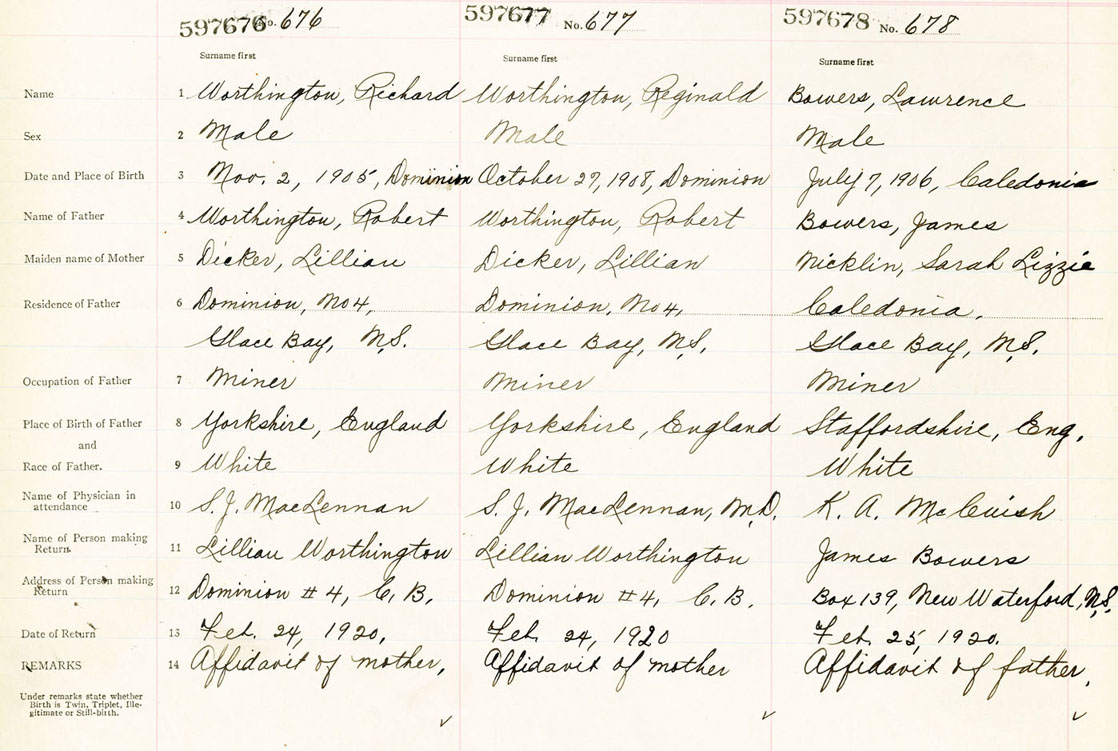 597676 No. 676 597677 No. 677 597678 No. 678
Surname first Surname first Surname first
Name 1 Worthington, Richard Worthington, Reginald Bowers, Lawrence
Sex 2 Male Male Male
Date and Place of Birth 3 Nov. 2, 1905, Dominion October 27, 1908, Dominion July 7, 1906, Caledonia
Name of Father 4 Worthington, Robert Worthington, Robert Bowers, James
Maiden name of Mother 5 Dicker, Lillian Dicker, Lillian Nicklin, Sarah Lizzie
Residence of Father 6 Dominion, No 4, Dominion, No 4, Caledonia,
Glace Bay, N.S. Glace Bay, N.S. Glace Bay, N.S.
Occupation of Father 7 Miner Miner Miner
Place of Birth of Father 8 Yorkshire, England Yorkshire, England Staffordshire, Eng.
and
Race of Father. 9 White White White
Name of Physician in
attendance 10 S. J. MacLennan S. J. MacLennan, M.D. K. A. McCuish
Name of Person making
Return 11 Lillian Worthington Lillian Worthington James Bowers
Address of Person making
Return 12 Dominion # 4, C. B. Dominion # 4, C. B. Box 139, New Waterford, N.S.
Date of Return 13 Feb. 24, 1920, Feb. 24, 1920 Feb. 25, 1920.
REMARKS 14 Affidavit of mother, Affidavit of mother Affidavit of father,
Under remarks state whether
Birth is Twin, Triplet, Ille-
gitimate or Still-birth.